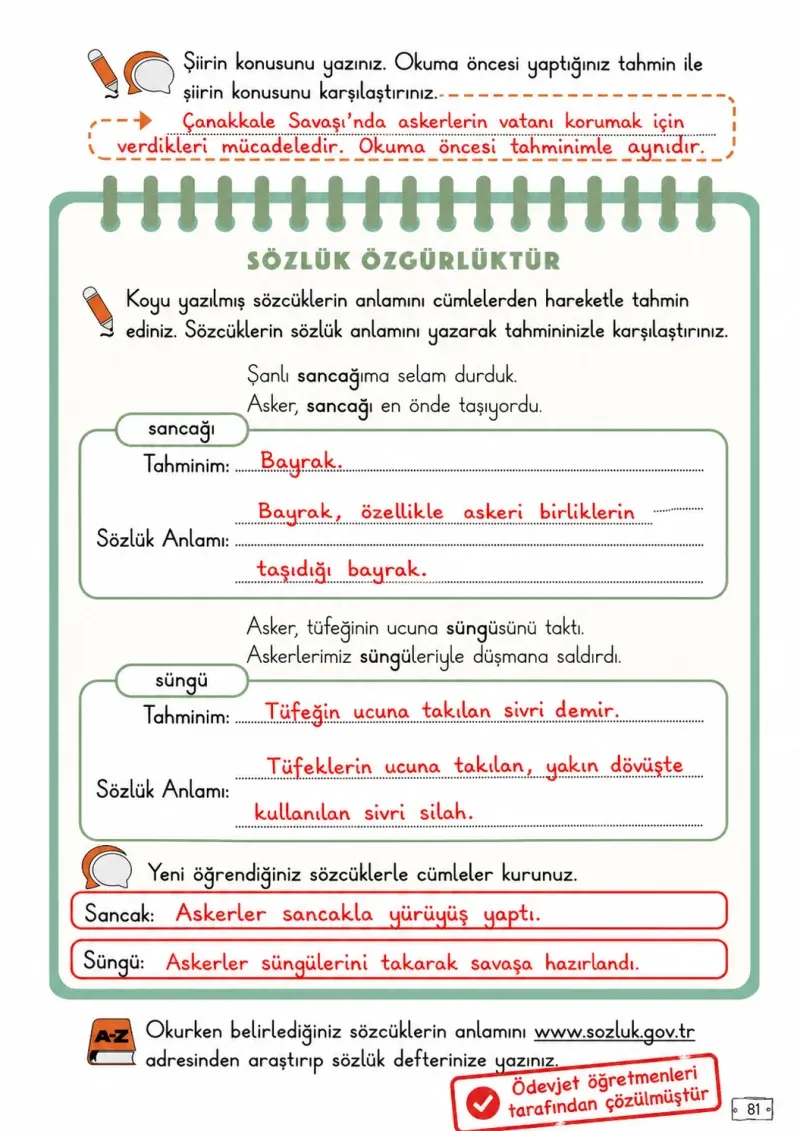 Şiirin konusunu yazınız. Okuma öncesi yaptığınız tahmin ile
şiirin konusunu karşılaştırınız.
Çanakkale Savaşı'nda askerlerin vatanı korumak için
verdikleri mücadeledir. Okuma öncesi tahminimle aynıdır.
SÖZLÜK ÖZGÜRLÜKTÜR
Koyu yazılmış sözcüklerin anlamını cümlelerden hareketle tahmin
ediniz. Sözcüklerin sözlük anlamını yazarak tahmininizle karşılaştırınız.
Şanlı sancağıma selam durduk.
Asker, sancağı en önde taşıyordu.
sancağı
Tahminim: Bayrak.
Bayrak, özellikle askeri birliklerin
Sözlük Anlamı:
taşıdığı bayrak.
Asker, tüfeğinin ucuna süngüsünü taktı.
Askerlerimiz süngüleriyle düşmana saldırdı.
süngü
Tahminim: Tüfeğin ucuna takılan sivri demir.
Tüfeklerin ucuna takılan, yakın dövüşte
Sözlük Anlamı:
kullanılan sivri silah.
Yeni öğrendiğiniz sözcüklerle cümleler kurunuz.
Sancak: Askerler sancakla yürüyüş yaptı.
Süngü: Askerler süngülerini takarak savaşa hazırlandı.
A-Z
Okurken belirlediğiniz sözcüklerin anlamını www.sozluk.gov.tr
adresinden araştırıp sözlük defterinize yazınız.
Ödevjet öğretmenleri
tarafından çözülmüştür
81